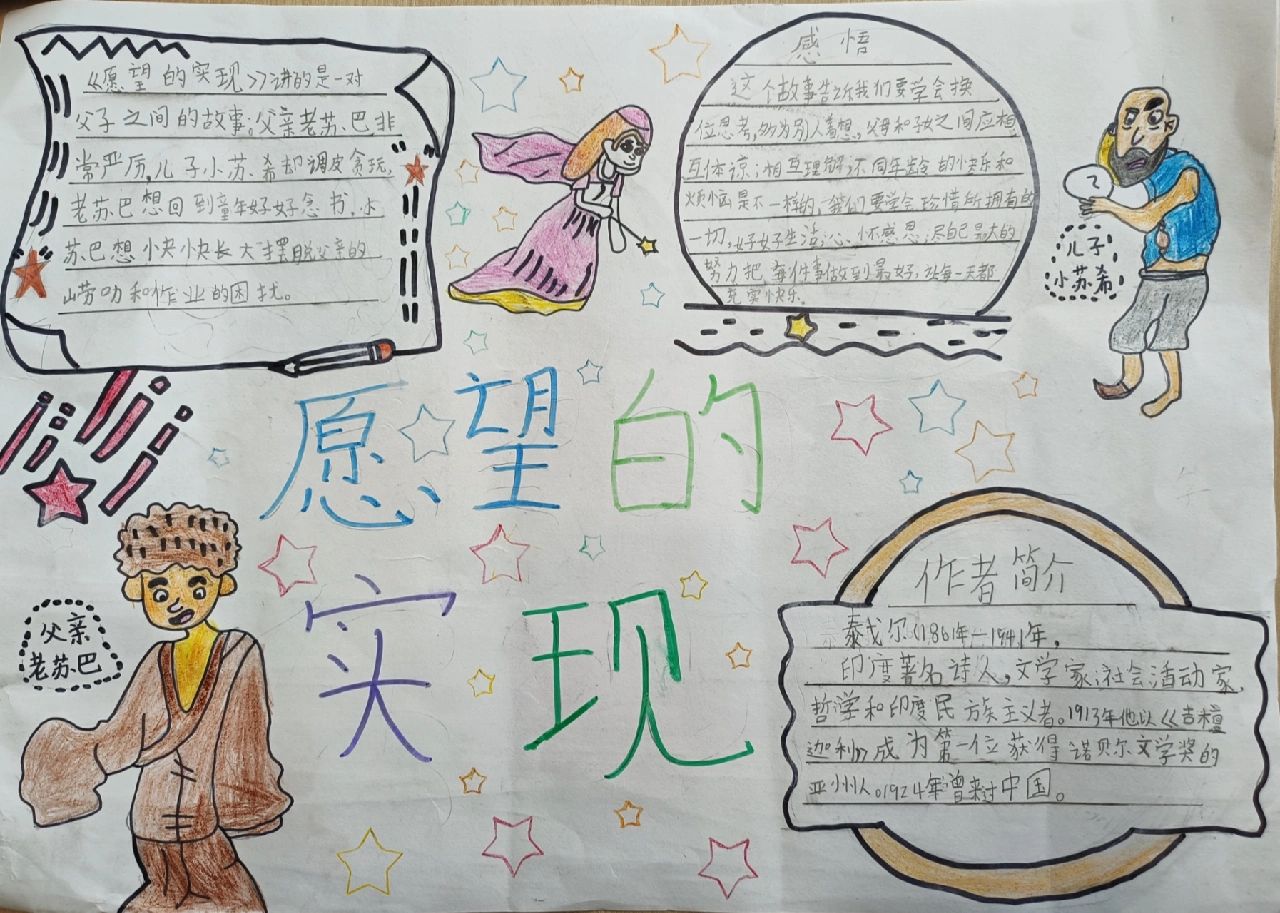 《愿望的实现》讲的是一对
父子之间的故事。父亲老苏巴非
常严厉,儿子小苏希却调皮贪玩,
老苏巴想回到童年好好念书,小
苏巴想快快长大摆脱父亲的
唠叨和作业的困扰。
感悟
这个故事告诉我们要学会换
位思考,多为别人着想,父母和子女之间应相
互体谅,相互理解,不同年龄的快乐和
烦恼是不一样的,我们要学会珍惜所拥有的
一切,好好生活,心怀感恩,尽自己最大的
努力把每件事做到最好,让每一天都
充实快乐。
儿子
小苏希
愿望的
实现
父亲
老苏巴
作者简介
泰戈尔(1861年—1941年,
印度著名诗人,文学家,社会活动家,
哲学和印度民族主义者。1913年他以《吉檀
迦利》成为第一位获得诺贝尔文学奖的
亚州人。1924年曾来过中国。